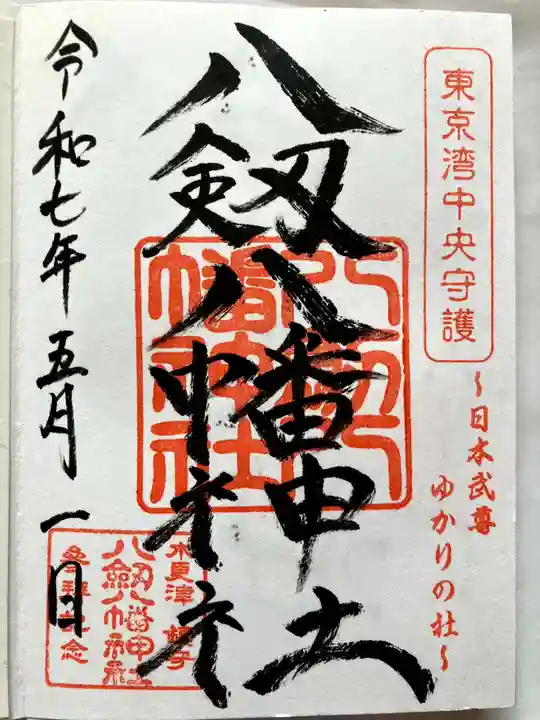 東京湾中央守護
～日本武尊
ゆかりの社～
八剱八幡神社
木更津 鎮守
八剱八幡神社
参拝記念
令和七年五月一日